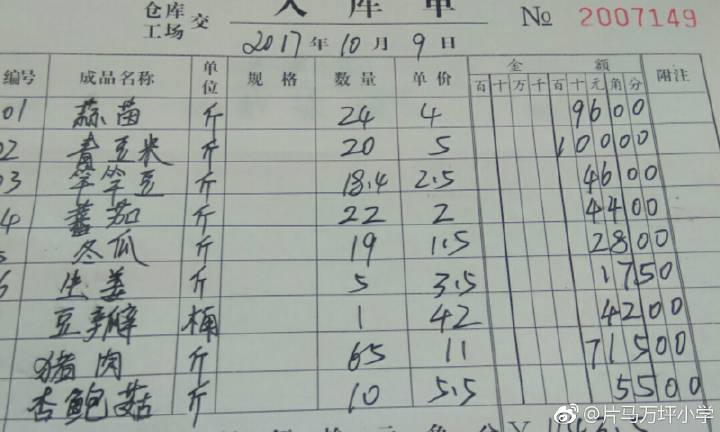 仓库 入库单 № 2007149
工场 交
2017年10月9日
编号 成品名称 单位 规格 数量 单价 金额 附注
百十万千百十元角分
01 蒜苗 斤 24 4 9600
02 青豆米 斤 20 5 10000
03 竿竿豆 斤 18.4 2.5 4600
4 蕃茄 斤 22 2 4400
冬瓜 斤 19 1.5 2800
6 生姜 斤 5 3.5 1750
豆瓣 桶 1 42 4200
猪肉 斤 65 11 71500
杏鲍菇 斤 10 5.5 5500
角 分 ¥
@片马万坪小学